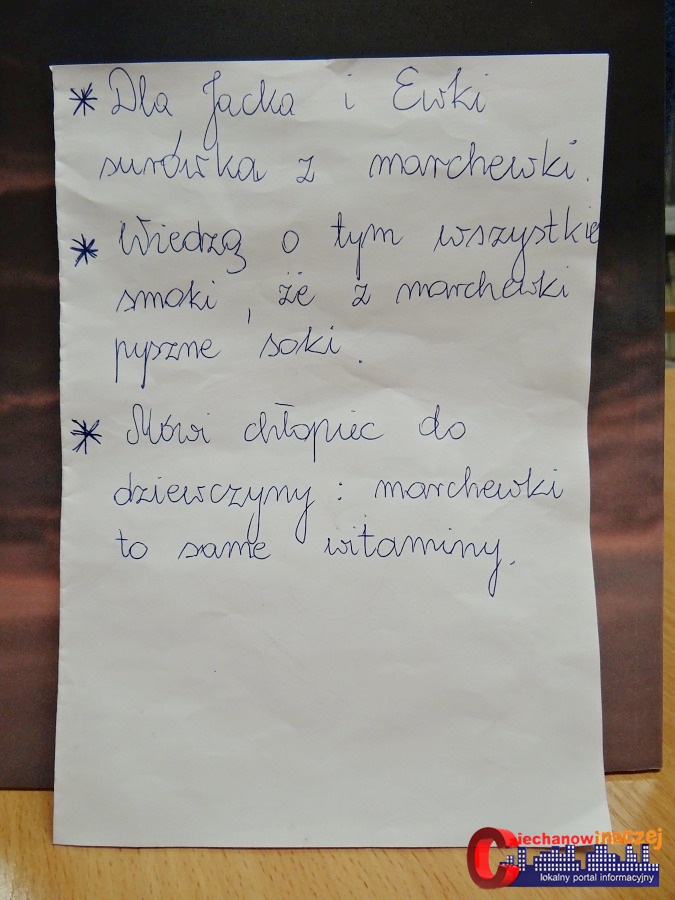 * Dla Jacka i Ewki
surówka z marchewki.
* Wiedzą o tym wszystkie
smoki, że z marchewki
pyszne soki.
* Mówi chłopiec do
dziewczyny: marchewki
to same witaminy.
Ciechanowinaczej
lokalny portal informacyjny